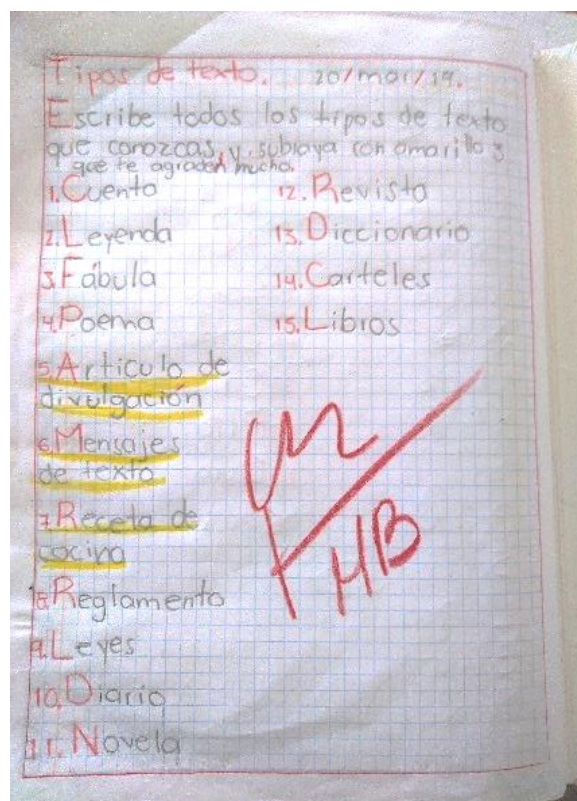 Tipos de texto. 20/mar/19.
Escribe todos los tipos de texto
que conozcas, y subraya con amarillo 3
que te agraden mucho.
1. Cuento
2. Leyenda
3. Fábula
4. Poema
5. Articulo de
divulgación
6. Mensajes
de texto
7. Receta de
cocina
8. Reglamento
9. Leyes
10. Diario
11. Novela
12. Revista
13. Diccionario
14. Carteles
15. Libros
MB